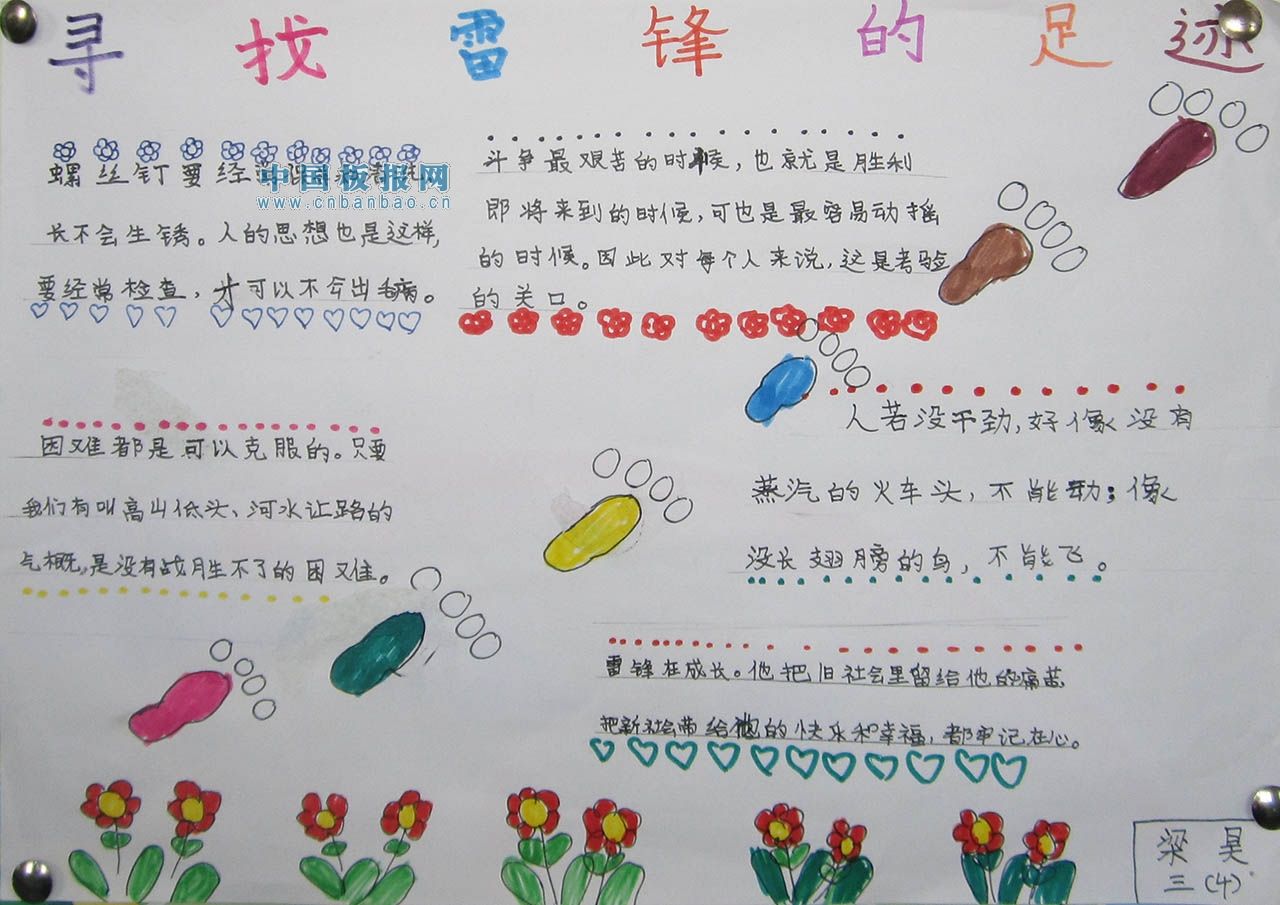 寻找雷锋的足迹
螺丝钉要经
中国板报网
www.cnbanbao.cn
长不会生锈。人的思想也是这样,
要经常检查,才可以不会出毛病。
斗争最艰苦的时候,也就是胜利
即将来到的时候,可也是最容易动摇
的时候。因此对每个人来说,这是考验
的关口。
人若没干劲,好像没有
蒸汽的火车头,不能动;像
没长翅膀的鸟,不能飞。
困难都是可以克服的。只要
我们有叫高山低头、河水让路的
气概,是没有战胜不了的困难。
雷锋在成长。他把旧社会里留给他的痛苦
把新社会带给他的快乐和幸福,都牢记在心。
梁昊
三(4)